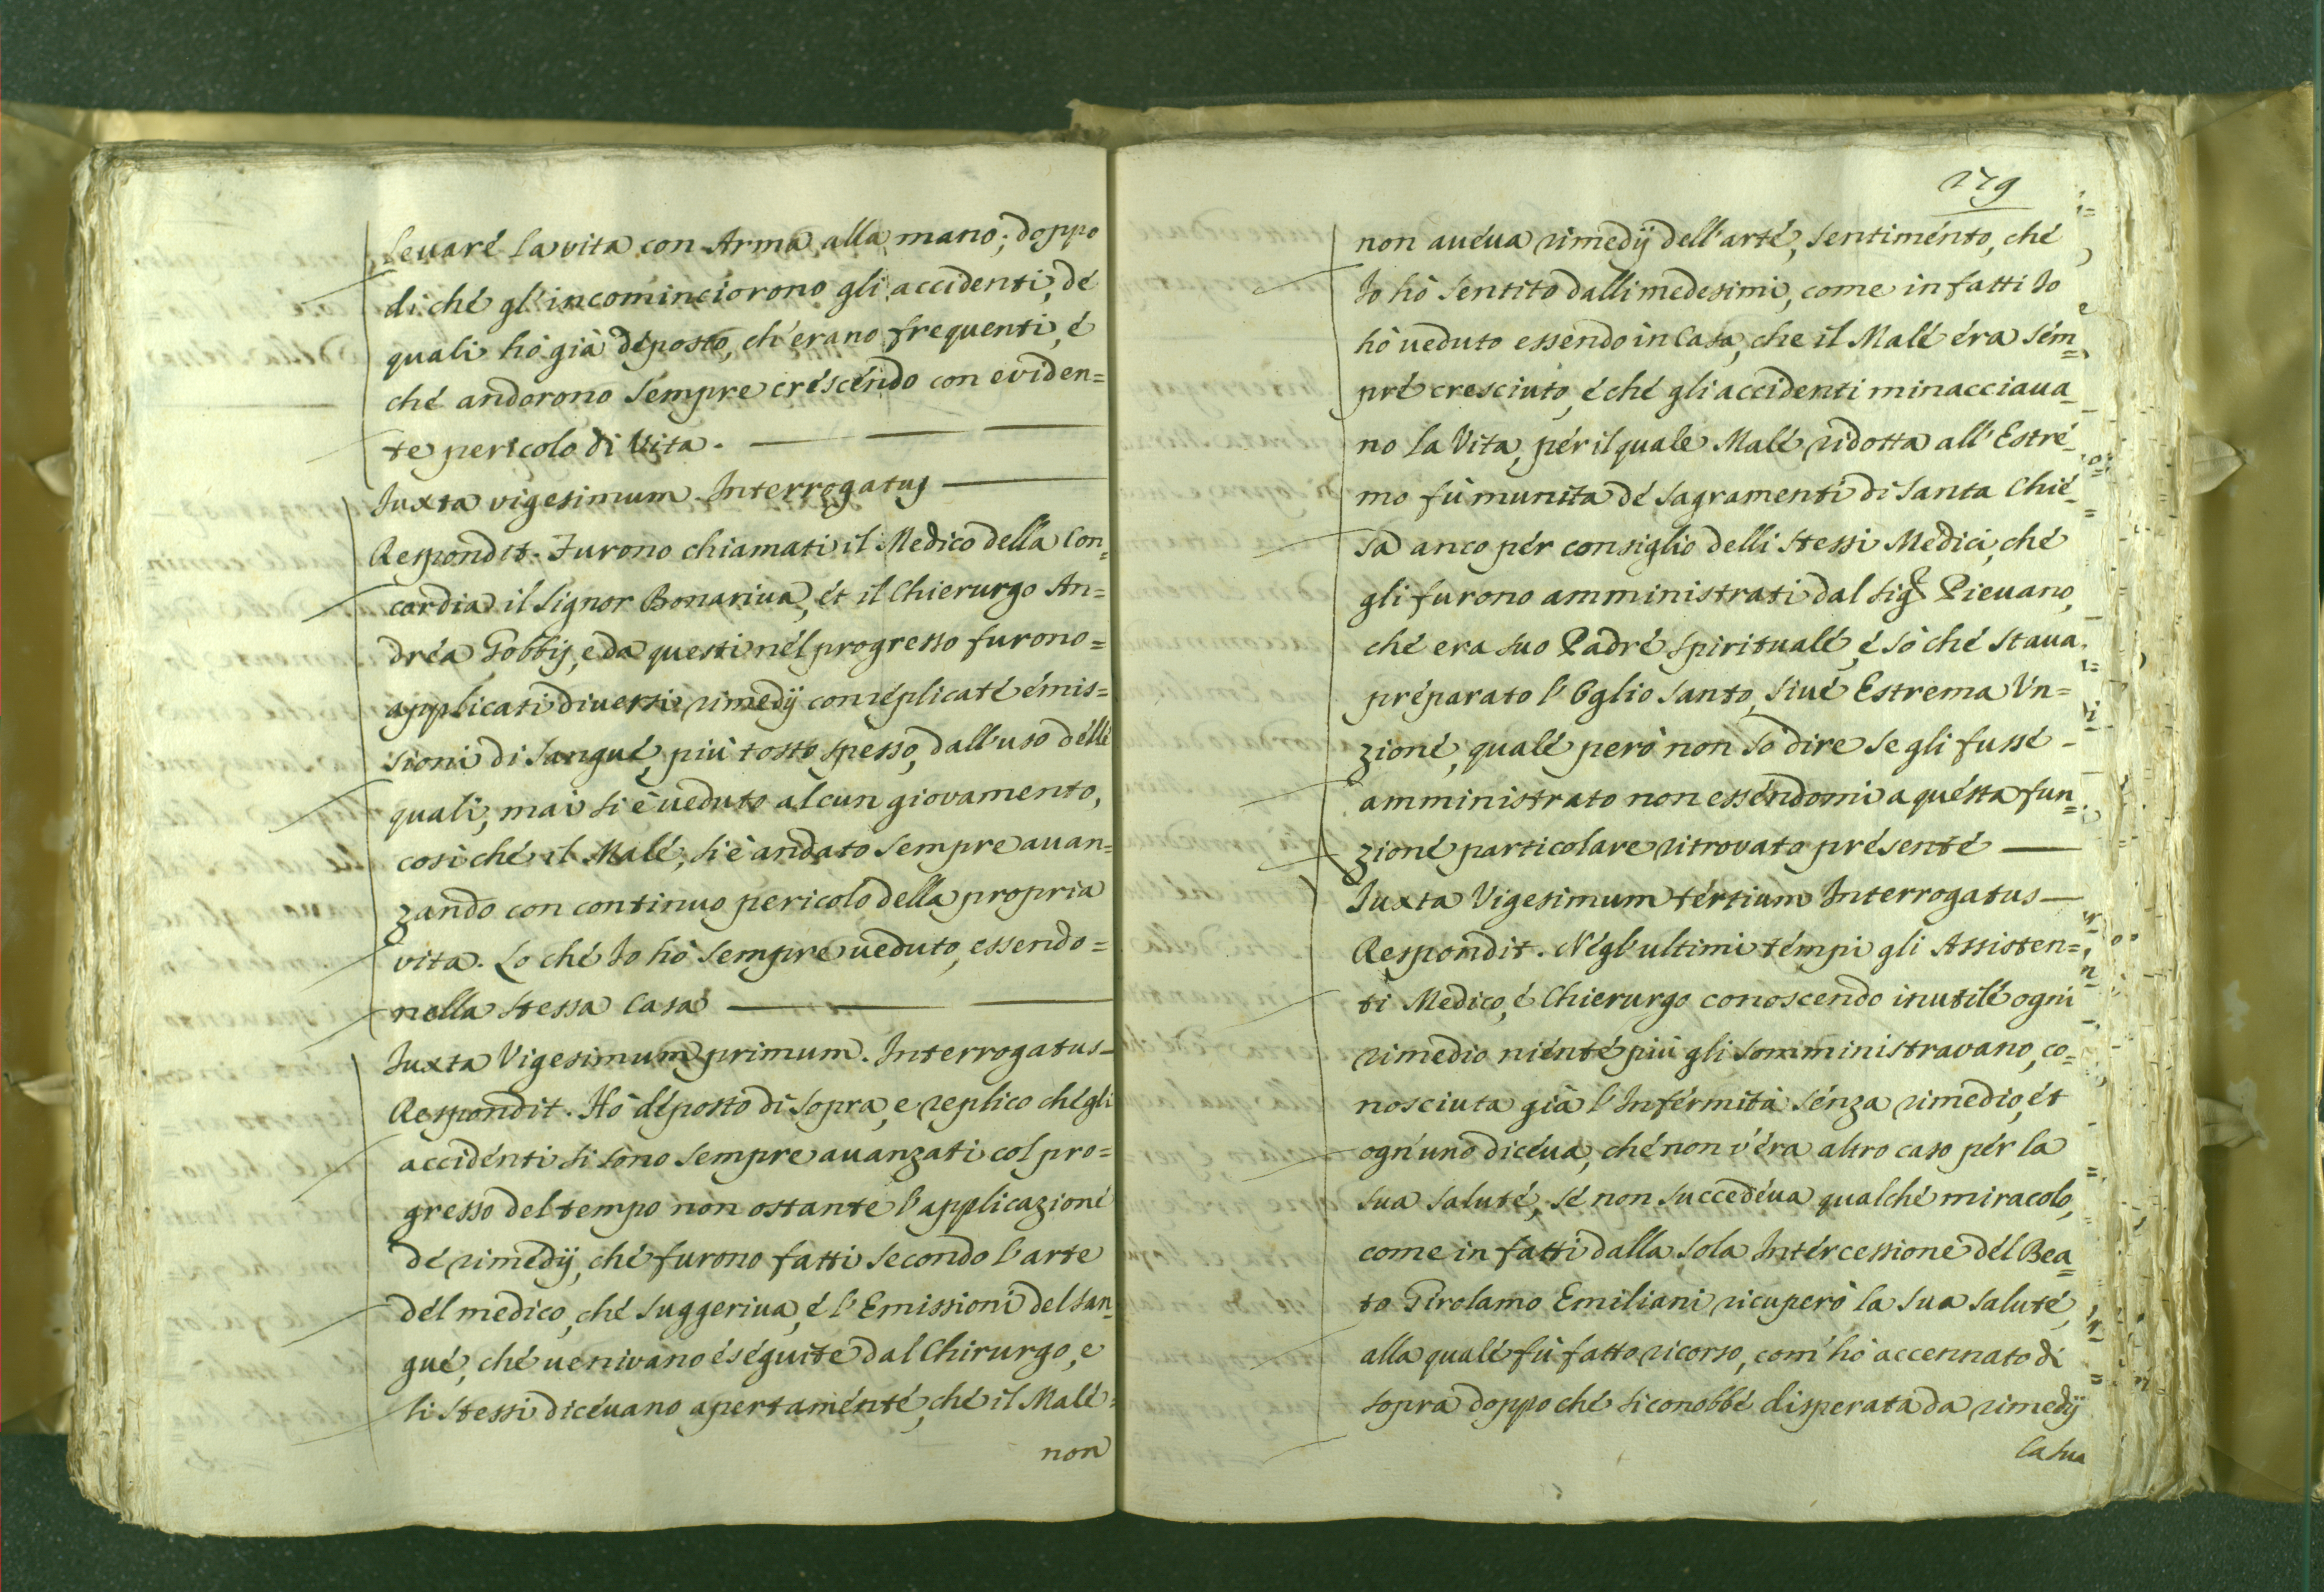 levaré la vita con Arma alla mano; doppo
di ché gl'incominciorono gli accidenti, dé
quali hò già déposto, ch'erano frequenti, é
ché andorono sempre créscéndo con eviden=
te pericolo di Vita.
Iuxta vigesimum Interrogatus
Respondit. Furono chiamati il Medico della Con=
cordia il Signor Bonariua, ét il Chierurgo An=
dréa Gobbij, e da questi nél progresso furono=
applicati diuersi rimedij con réplicaté émis=
sioni di Sangué, più tosto spesso, dall'uso délli
quali, mai si è ueduto alcun giovamento,
cosi ché il Malé, si è andato sempre auan=
zando con continuo pericolo della propria
vita. Lo ché Io hò sempre ueduto, essendo=
nella stessa Casa
Iuxta Vigesimum primum. Interrogatus
Respondit. Hò déposto di sopra, e replico ché gli
accidénti si sono sempre auanzati col pro=
gresso del tempo non ostante l'applicazioné
dé rimedij, ché furono fatti secondo l'arte
dél medico, ché suggeriua, é l'Emissioni del san=
gué, ché uenivano éséguite dal Chirurgo, e
li stessi dicéuano apertaménté, ché il Malé=
non
179
non auéua rimedij dell'arté, sentiménto, ché
Io hò sentito dalli medesimi, come in fatti Io
hò ueduto essendo in Casa, che il Malé éra sém=
pré cresciuto, é ché gli accidenti minacciaua=
no la Vita, pér il quale Malé ridotta all'Estré=
mo fù munita dé Sagramenti di Santa Chié=
sa anco pér consiglio delli stessi Medici, ché
gli furono amministrati dal Sigr Pieuano,
ché era suo Padré spiritualé, é sò ché staua
préparato l'Oglio Santo, siué Estrema Vn=
zioné, qualé però non sò dire se gli fussé
amministrato non esséndomi a quésta fun=
zioné particolare ritrovato présenté
Iuxta Vigesimum tértium Interrogatus
Respondit. Négl'ultimi témpi gli Assisten=
ti Medico, é Chierurgo conoscendo inutilé ogni
rimedio niénté più gli somministravano, co=
nosciuta già l'Inférmità sénza rimedio, ét
ogn'uno dicéua, ché non v'éra altro caso pér la
sua saluté, sé non succedéua qualché miracolo,
come in fatti dalla sola Intércessione dél Bea=
to Girolamo Emiliani ricuperò la sua saluté,
alla qualé fù fatto ricorso, com'hò accennato di
sopra doppo ché si conobbé disperata da rimedij
la sua